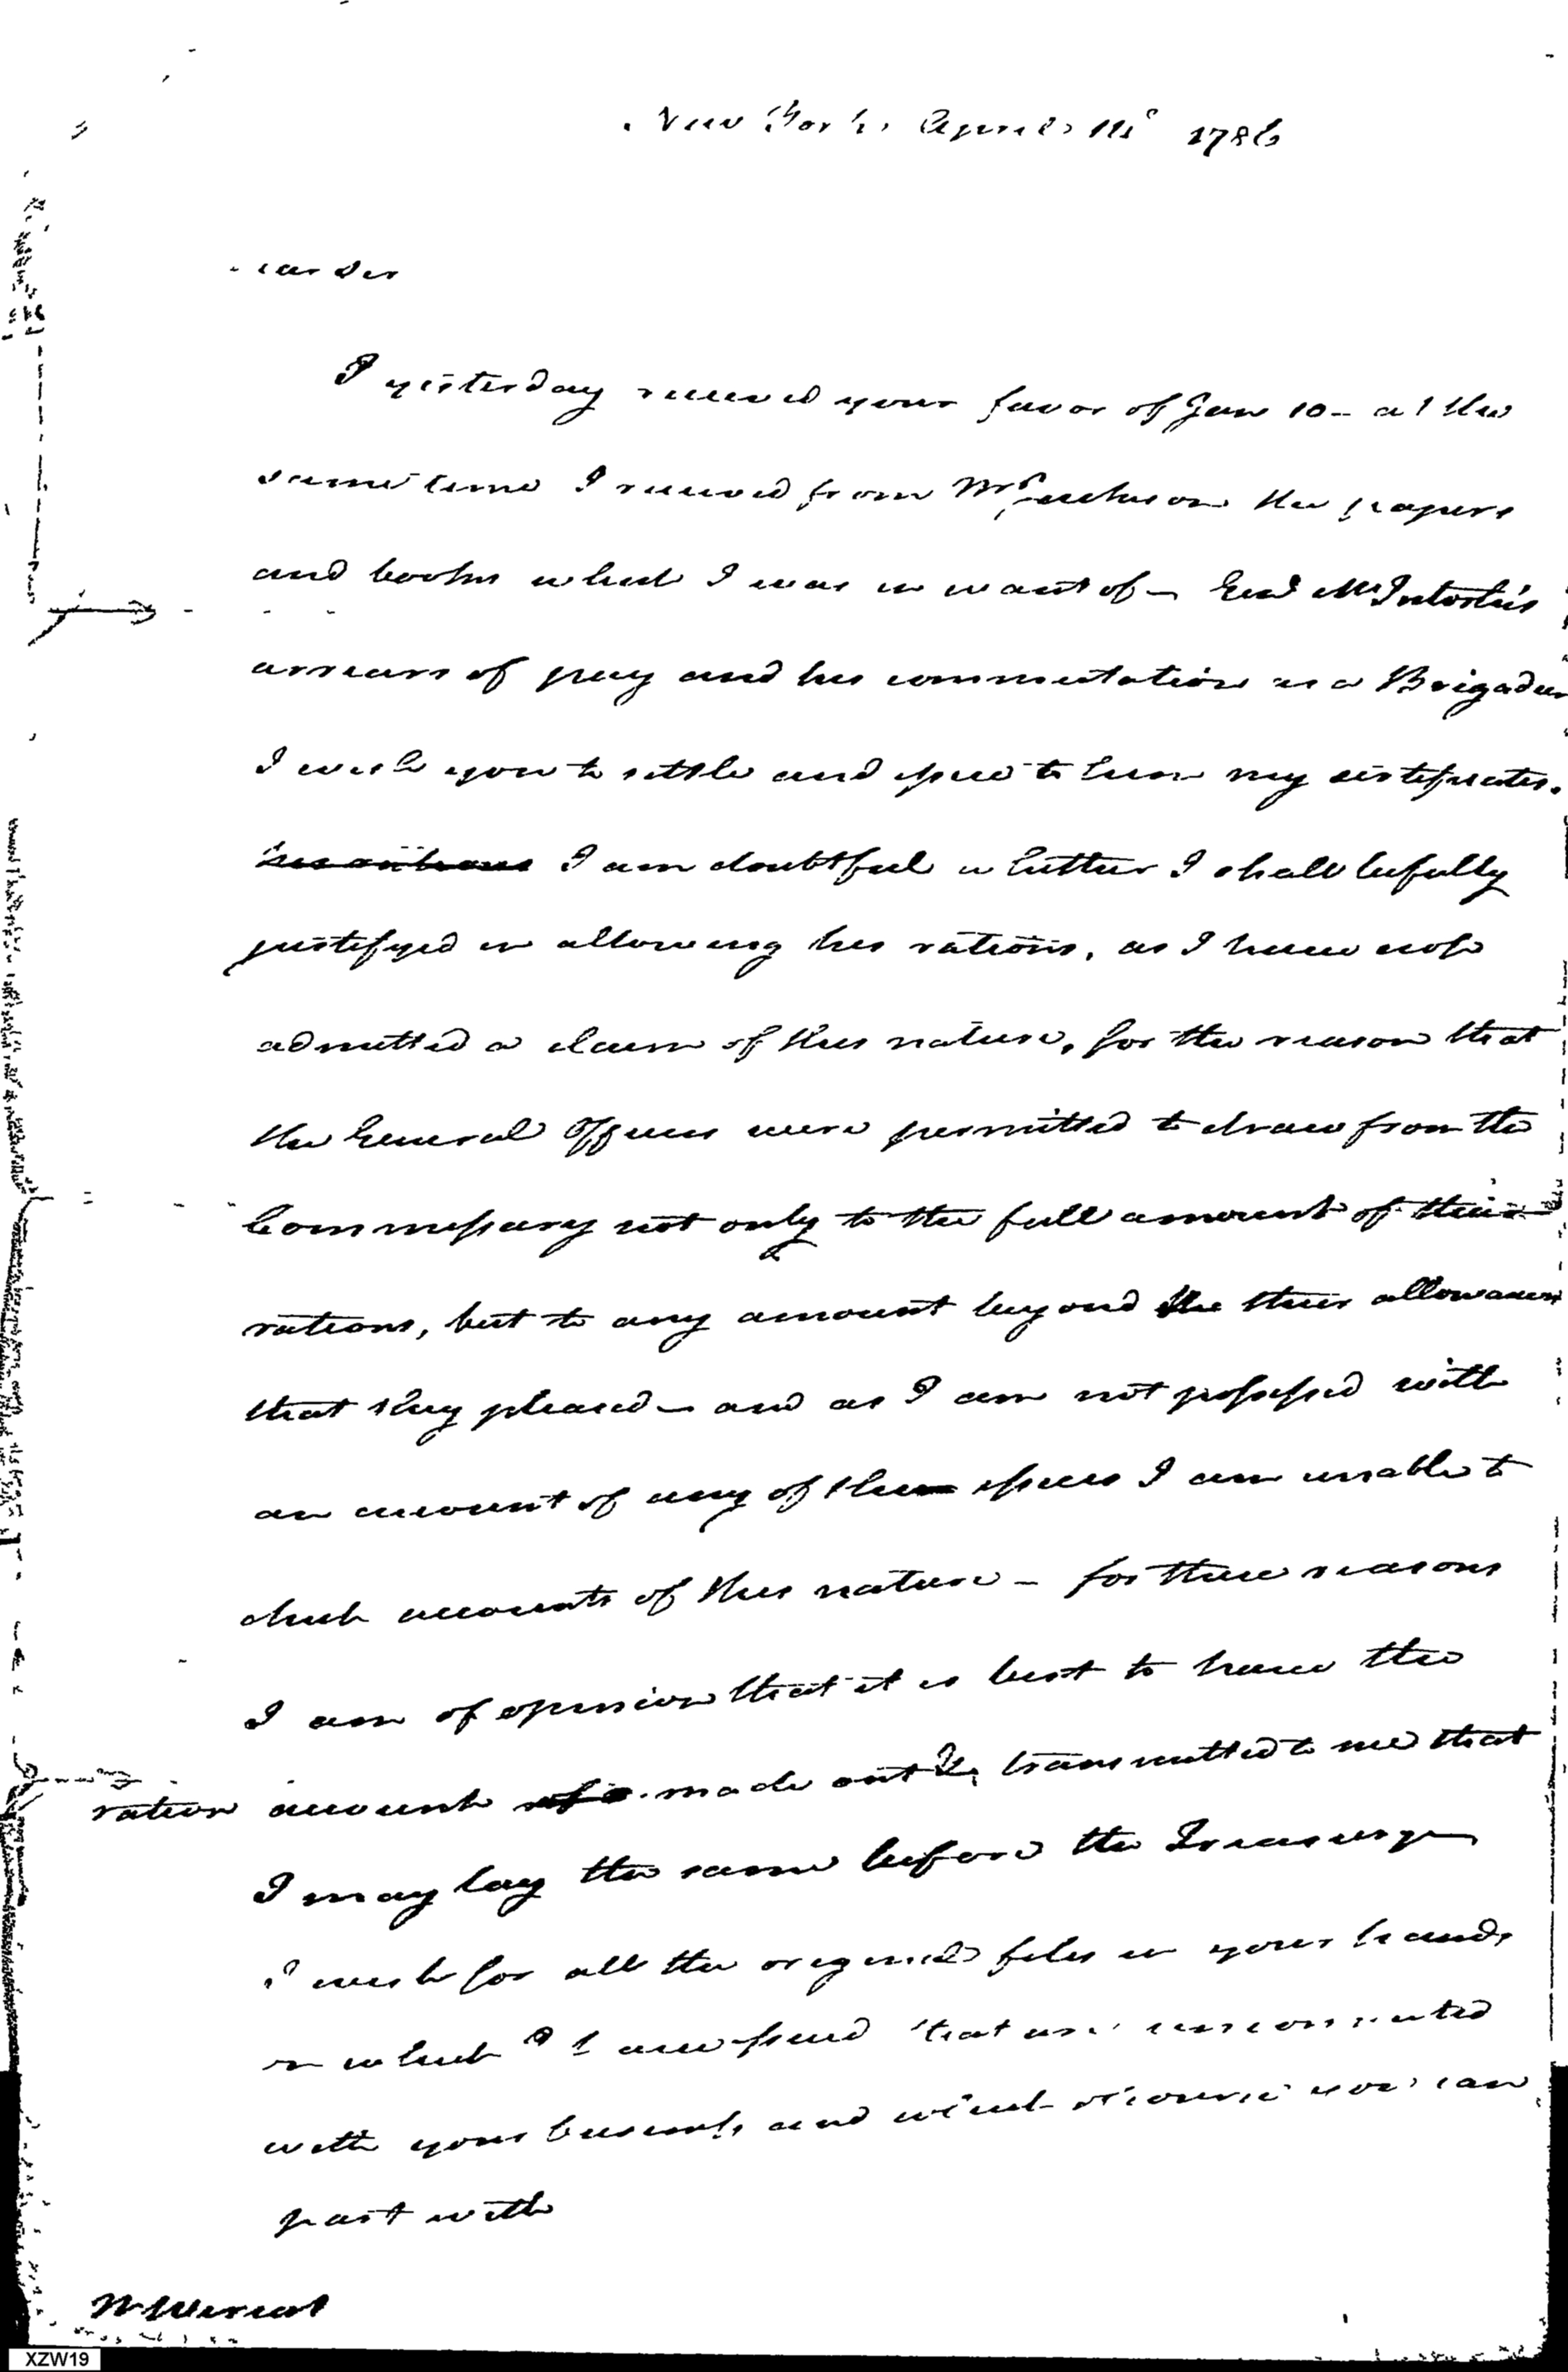 New York, April 1786
ear Sir
I yesterday received your favor of Jan 10 - at the
same time I received from Mr the papers
and books which I was in want of - Genl McIntosh's
arrears of pay and his commutation as a Brigadier
I wish you to settle and issue to him my certificates.
I am doubtful whether I shall be fully
justifyed in allowing his rations, as I have not
admitted a claim of this nature, for the reason that
the General Officers were permitted to draw from the
Commissary not only to the full amount of their
rations, but to any amount beyond the their allowances
that they pleased - and as I am not possessed with
an account of any of these issues I am unable to
check accounts of this nature - for these reasons
I am of opinion that it is best to have the
ration account made out & transmitted to me that
I may lay the same before the Treasury
I wish for all the original files in your hands
in which I that are unconnected
with your business, and which of course you can
part with
Wereat
XZW19